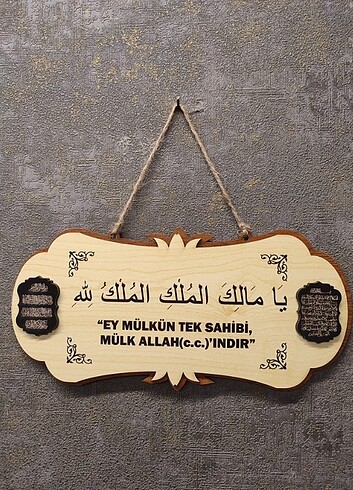 يا مَالِكَ المُلْكِ المُلْكُ لِلّٰه
“EY MÜLKÜN TEK SAHİBİ,
MÜLK ALLAH(c.c.)’INDIR”